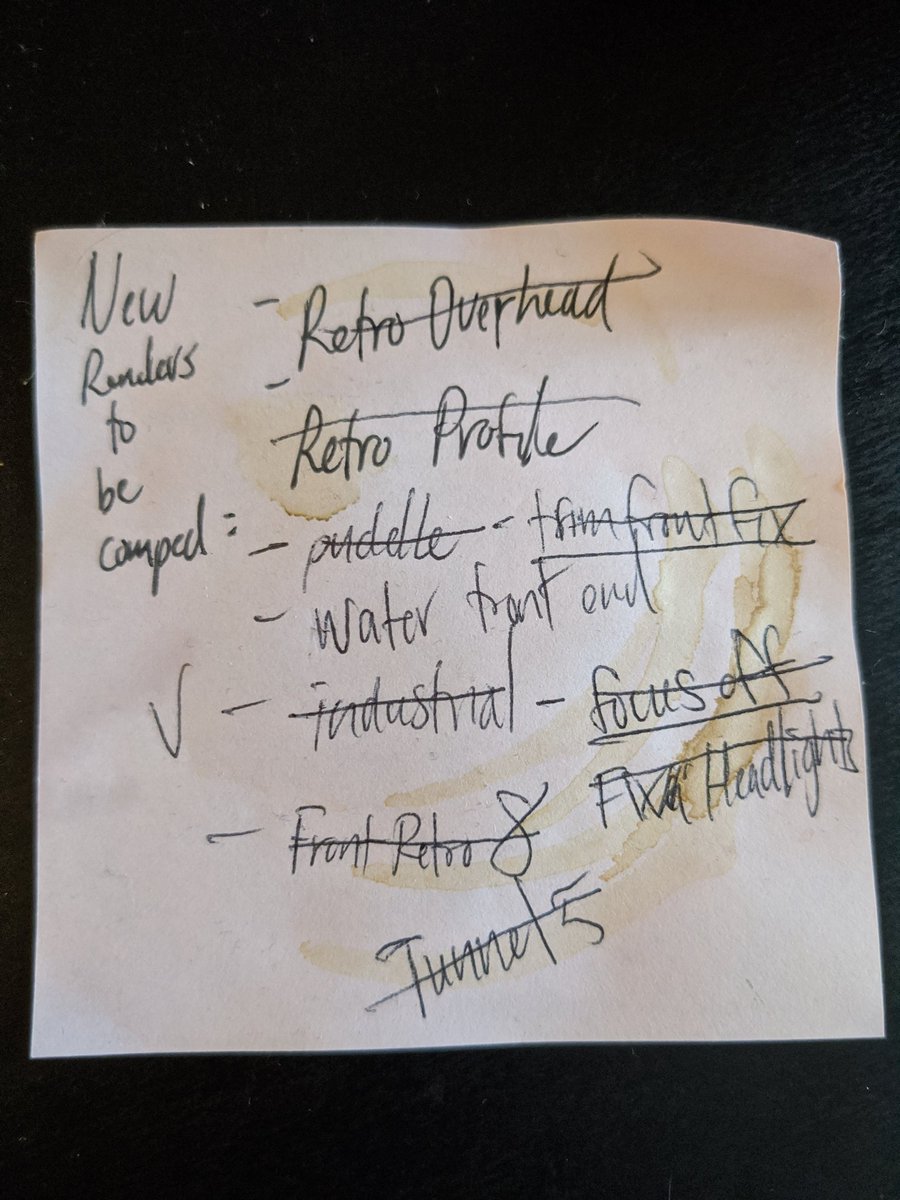 New
Renders
to
be
comped:
- Retro Overhead
- Retro Profile
- puddle - trim front fix
- Water front end
√ - industrial - focus off
Headlights
- Front Retro 8
Tunnel 5